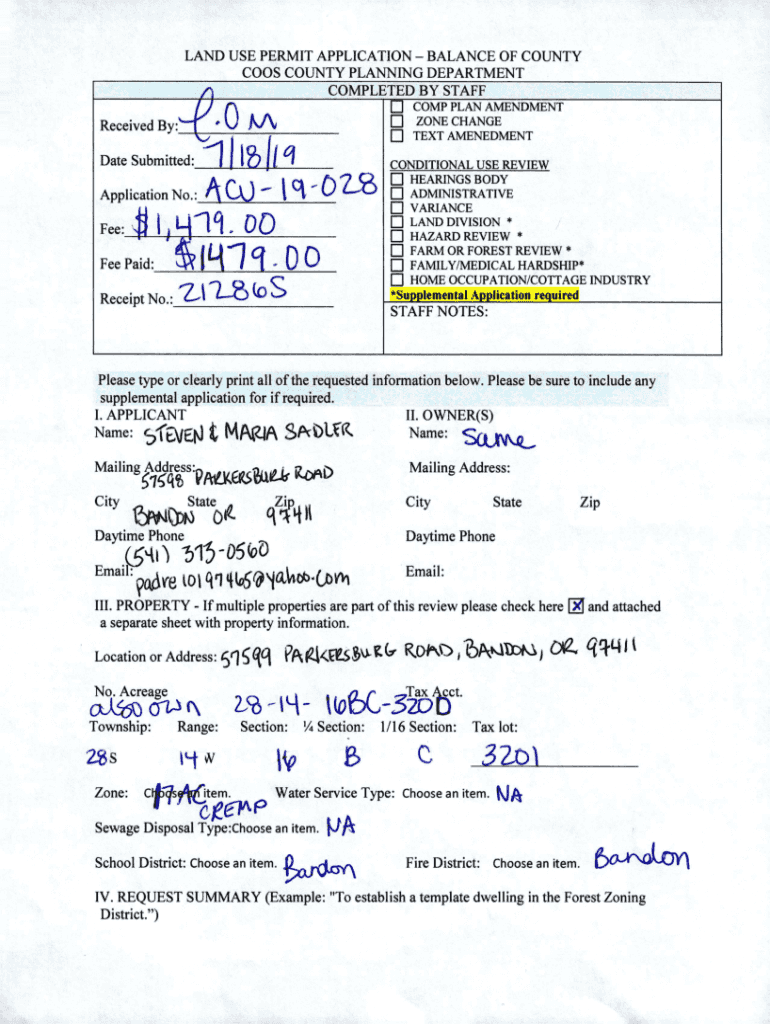 LAND USE PERMIT APPLICATION – BALANCE OF COUNTY
COOS COUNTY PLANNING DEPARTMENT
COMPLETED BY STAFF
Received By:
Date Submitted: 7/18/19
Application No.: ACU-19-028
Fee: $1,479.00
Fee Paid: $1479.00
Receipt No.: 212865
COMP PLAN AMENDMENT
ZONE CHANGE
TEXT AMENEDMENT
CONDITIONAL USE REVIEW
HEARINGS BODY
ADMINISTRATIVE
VARIANCE
LAND DIVISION *
HAZARD REVIEW *
FARM OR FOREST REVIEW *
FAMILY/MEDICAL HARDSHIP*
HOME OCCUPATION/COTTAGE INDUSTRY
*Supplemental Application required
STAFF NOTES:
Please type or clearly print all of the requested information below. Please be sure to include any
supplemental application for if required.
I. APPLICANT II. OWNER(S)
Name: STEVEN & MARIA SADLER Name: Same
Mailing Address: 57598 PARKERSBURG ROAD Mailing Address:
City State Zip City State Zip
BANDON OR 97411
Daytime Phone Daytime Phone
(541) 373-0560
Email: padre10197465@yahoo.com Email:
III. PROPERTY - If multiple properties are part of this review please check here X and attached
a separate sheet with property information.
Location or Address: 57599 PARKERSBURG ROAD, BANDON, OR 97411
No. Acreage Tax Acct.
also own 28-14-16BC-3200
Township: Range: Section: ¼ Section: 1/16 Section: Tax lot:
28S 14W 16 B C 3201
Zone: Choose an item. Water Service Type: Choose an item. NA
CREMP
Sewage Disposal Type:Choose an item. NA
School District: Choose an item. Bandon Fire District: Choose an item. Bandon
IV. REQUEST SUMMARY (Example: "To establish a template dwelling in the Forest Zoning
District.")